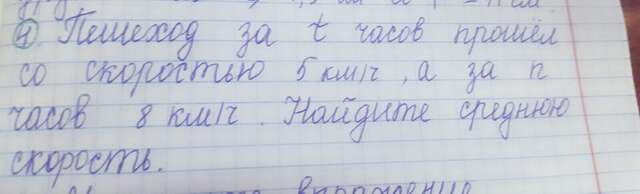 ④ Пешеход за t часов прошёл
со скоростью 5 км/ч, а за n
часов 8 км/ч. Найдите среднюю
скорость.